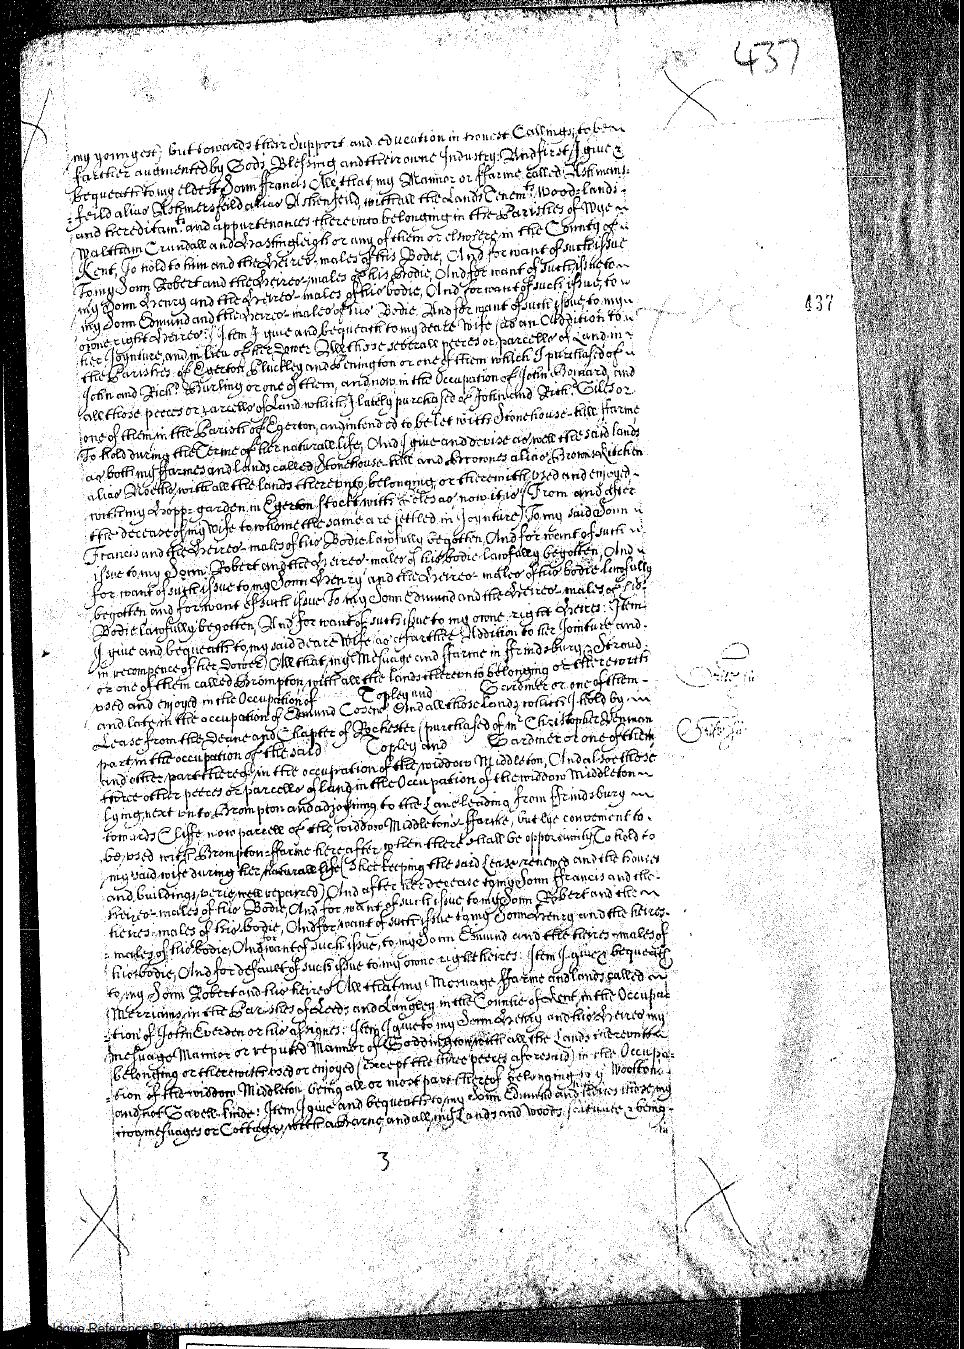 437
my youngest) but towards their Support and education in honest Callings, to be
farther augmented by Gods Blessing and their owne Industry: And first, I give &
bequeath to my eldest Sonn Francis All that my Mannor or ffarme called Ashmers-
feild alias Ashmersfeild alias Ashenfeild, with all the Lands Tenem:ts Woodlands
and hereditam:ts and appurtenances thereunto belonging in the Parishes of Wye
Waltham Crundall and Hastingleigh or any of them or elswhere in the County of
Kent, To hold to him and the Heires males of his Bodie, And for want of such issue
To my Sonn Robert and the Heires males of his Bodie, And for want of such issue to
my Sonn Henry and the Heires males of his bodie, And for want of such issue, to
my Sonn Edmund and the Heires males of his Bodie, And for want of such issue to my
owne right Heires: Item I give and bequeath to my deare Wife (as an Addition to
her Joynture, and in lieu of her Dower All those severall peeces or parcells of Land in
the Parishes of Egerton, Pluckley and or one of them which I purchased of
John and Rich:d Hurling or one of them, and now in the Occupation of John and
all those peeces or parcells of Land which I lately purchased of John and Rich:d Giles or
one of them, in the Parish of Egerton, and intended to be let with Stonehouse-hill ffarme
To hold during the Terme of her naturall life, And I give and devise as well the said lands
as both my ffarmes and lands called Stonehouse-hill and Brownes alias
alias with all the lands thereunto belonging, or therewith used and enjoyed
with my Hopp-garden, in Egerton as now it is) From and after
the decease of my Wife to whome the same are setled in Joynture) To my said Sonn
Francis and the Heires males of his Bodie lawfully begotten, And for want of such
issue to my Sonn Robert and the Heires males of his bodie lawfully begotten, And
for want of such issue to my Sonn Henry and the Heires males of his bodie lawfully
begotten and for want of such issue To my Sonn Edmund and the Heires males of his
Bodie lawfully begotten, And for want of such issue to my owne right Heires: Item
I give and bequeath to my said deare Wife, as a farther Addition to her Jointure and
in recompence of her Dower) All that my Messuage and ffarme in ffrindsbury & Stroud
or one of them called Brompton, with all the lands thereunto belonging or therewith
used and enjoyed in the Occupation of Topley and Gardmer or one of them
and late in the occupation of Edmund And all those Lands which I hold by
Lease from the Deane and Chapter of Rochester (purchased of m:r Christopher
part in the occupation of the said Topley and Gardmer or one of them
and other part thereof in the occupation of the widdow Middleton, And alsoe those
three other peeces or parcells of land in the Occupation of the widdow Middleton
lying next unto Brompton and adjoyning to the Lane leading from ffrindsbury
towards Cliffe now parcell of the widdow Middletons ffarme, but lye convenient to
be used with Brompton-ffarme hereafter when there shall be opportunity To hold to
my said wife during her naturall life (shee keeping the said Lease renewed and the houses
and buildings well repaired) And after her decease to my Sonn Francis and the
heires males of his Bodie, And for want of such issue to my Sonn Robert and the
heires males of his bodie, And for want of such issue to my Sonn Henry and the heires
males of his bodie, And for want of such issue, to my Sonn Edmund and the heires males of
his bodie, And for default of such issue to my owne right heires: Item I give & bequeath
to my Sonn Robert and his heires All that my Messuage ffarme and lands called
Merriams, in the Parishes of Leeds and Langley in the Countie of Kent, in the Occupa-
tion of John Everden or his assignes: Item I give to my Sonn Henry and his Heires my
Messuage Mannor or reputed Mannor of Goddington with all the Lands thereunto
belonging or therewith used or enjoyed (Except the three peeces aforesaid) in the Occupa-
tion of the widdow Middleton being all or most part thereof belonging to
and not Gavell-kinde: Item I give and bequeath to my Sonn Edmund and heires those my
two messuages or Cottages, with a Barne, and all my Lands and Woods scituate & being
in
437
3